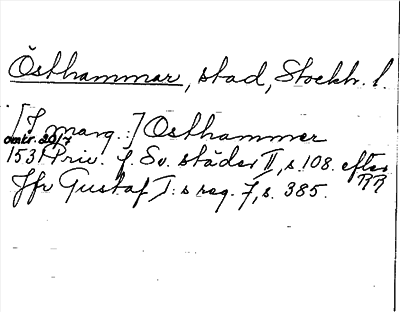 Östhammar, stad, Stockh. l.
[I marg.:] Osthammer
omkr. 20/7
1531 Priv. f. Sv. städer II, s. 108. efter RR
Jfr Gustaf I:s reg. 7, s. 385.